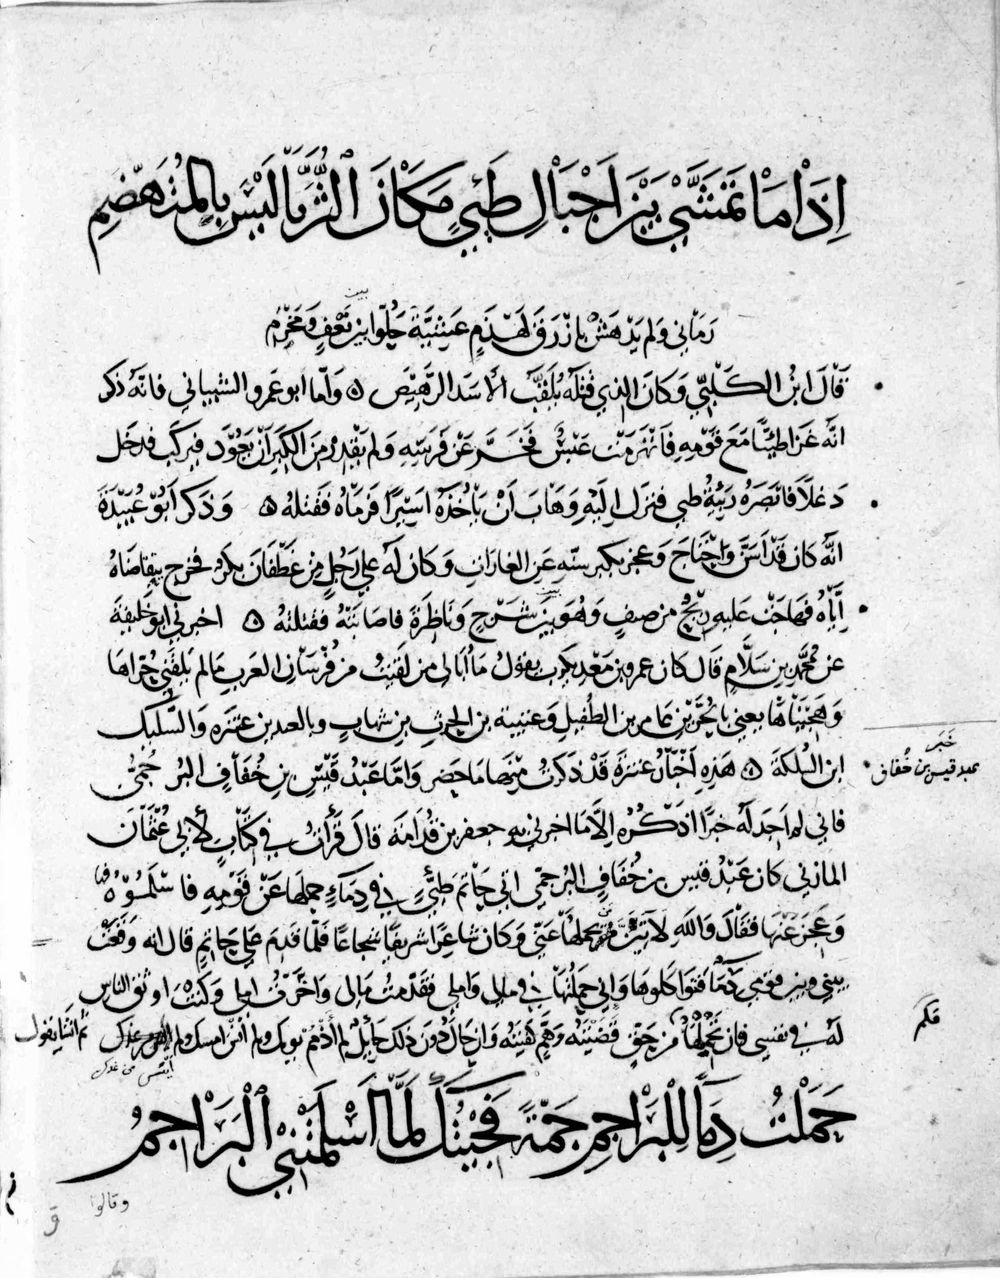 اِذَا مَا تَمَشَّى بَيْنَ اَجْبَالِ طَيِّيٍ مَكَانَ الثُّرَيَّا لَيْسَ بِالمُتَهَضَّمِ
رَمَانِي وَلَم يَدْهَشْ بِاَزْرَقَ لَهْذَمٍ عَشِيَّةَ حَلُّوا بين نَعْفٍ وَمَخْرَمِ
قَالَ ابنُ الكَلْبِيِّ وَكَانَ الذي قتلَهُ يُلَقَّبُ الأسَدَ الرَّهِيْصَ ه وَامّا ابو عَمرو الشيباني فانّه ذكر
انّه غزا طيئًا مَعَ قَوْمِهِ فَانْهَزَمَتْ عَبْسٌ فَخَرَّ عَنْ فَرَسِهِ وَلَم يَقْدِرْ مِنَ الكِبَرِ اَنْ يَعُوْدَ فيركب فدخَل
دَغَلاً فَابصَرَهُ رَبِيْئَةُ طيي فنزل اليهِ وَهَابَ اَنْ يَاْخُذَهُ اَسِيْرًا فَرمَاهُ فقتلهُ ه وَذكر اَبُوْ عُبَيْدَةَ
انّهُ كان قد اَسَنَّ وَاحْتَاجَ وَعجز بكبر سنّهِ عَنِ الغاراتِ وَكان لَهُ على رَجُلٍ مِنْ غَطَفَانَ بكرٌ فخرج يتقاضاهُ
اِيَّاهُ فهَاجَتْ عَليهِ رِيْحٌ من صيفٍ وَهُوَ بَيْنَ شَرْجٍ وَنَاظِرَةَ فاصَابتْهُ فقتلتْهُ ه اخبرني ابو خَلِيْفَة
عن مُحمَّدِ بنِ سَلَّامٍ قَال كان عمرو بن مَعْدِيكرب يقولُ مَا اُبَالي من لَقيتُ من فُرْسَانِ العرَبِ مَا لم يلقَني حُرَّاهَا
وَهَجِيْنَاهَا يعني بالحُرَّيْنِ عَامرَ بن الطفيلِ وَعتيبة بن الحرثِ بنِ شهابٍ وبالعبدين عنترَه وَالسُّلَيك
ابن السُلكَة ه هَذِهِ اَخْبَارُ عنترَةَ قَدْ ذكرتُ مِنْهَا مَا حَضر وَامّا عَبْدُ قَيْسِ بنِ خُفَافٍ البُرْجُمِيُّ
خَبَر
عبد قيس بن خُفاف
فاني لم اَجِد لَهُ خبرًا اَذكُرُه الاّ مَا اخبرني به جعفر بن قُدَامَة قالَ قَرَأْتُ في كتَابٍ لأبي عُثْمَانَ
المازني كان عَبْدُ قيس بن خُفَافٍ البُرْجمي اتى حَاتِمَ طيِّئٍ في دِمَاءٍ حملهَا عَنْ قَوْمِهِ فاسْلَمُوْهُ فيها
وَعَجَزَ عَنْهَا فقالَ وَاللهِ لآتِيَنَّ مَنْ يحملُهَا عَنّي وَكان شاعرًا شريفًا شجاعًا فلمّا قدم على حَاتمٍ قال له وَقَعَتْ
بيني وبين قومي دِمَآءٌ فتواكلوهَا وَاني حملتُهَا في مالي وَاملي فقدَّمتُ مَالي وَاخَّرتُ املي وَكنتَ اوثقَ الناس
لَهُ في نفسي فان تحمَّلْتَهَا فكم من حَقٍّ قَضَيْتَهُ وَهَمٍّ كفيتَهُ وَان حَال دُونَ ذلك حَائِلٌ لم اَذْمُمْ يومَك ولم انْسَ امسك ولم غدك ثم انشا يقول
فكم
ايئس من غدك
حَمَلْتُ دِمَآءً لِلْبَرَاجِمِ جَمَّةً فَجِيْتُكَ لَمَّا اَسْلَمَتْنِي الْبَرَاجِمُ
وقالوا